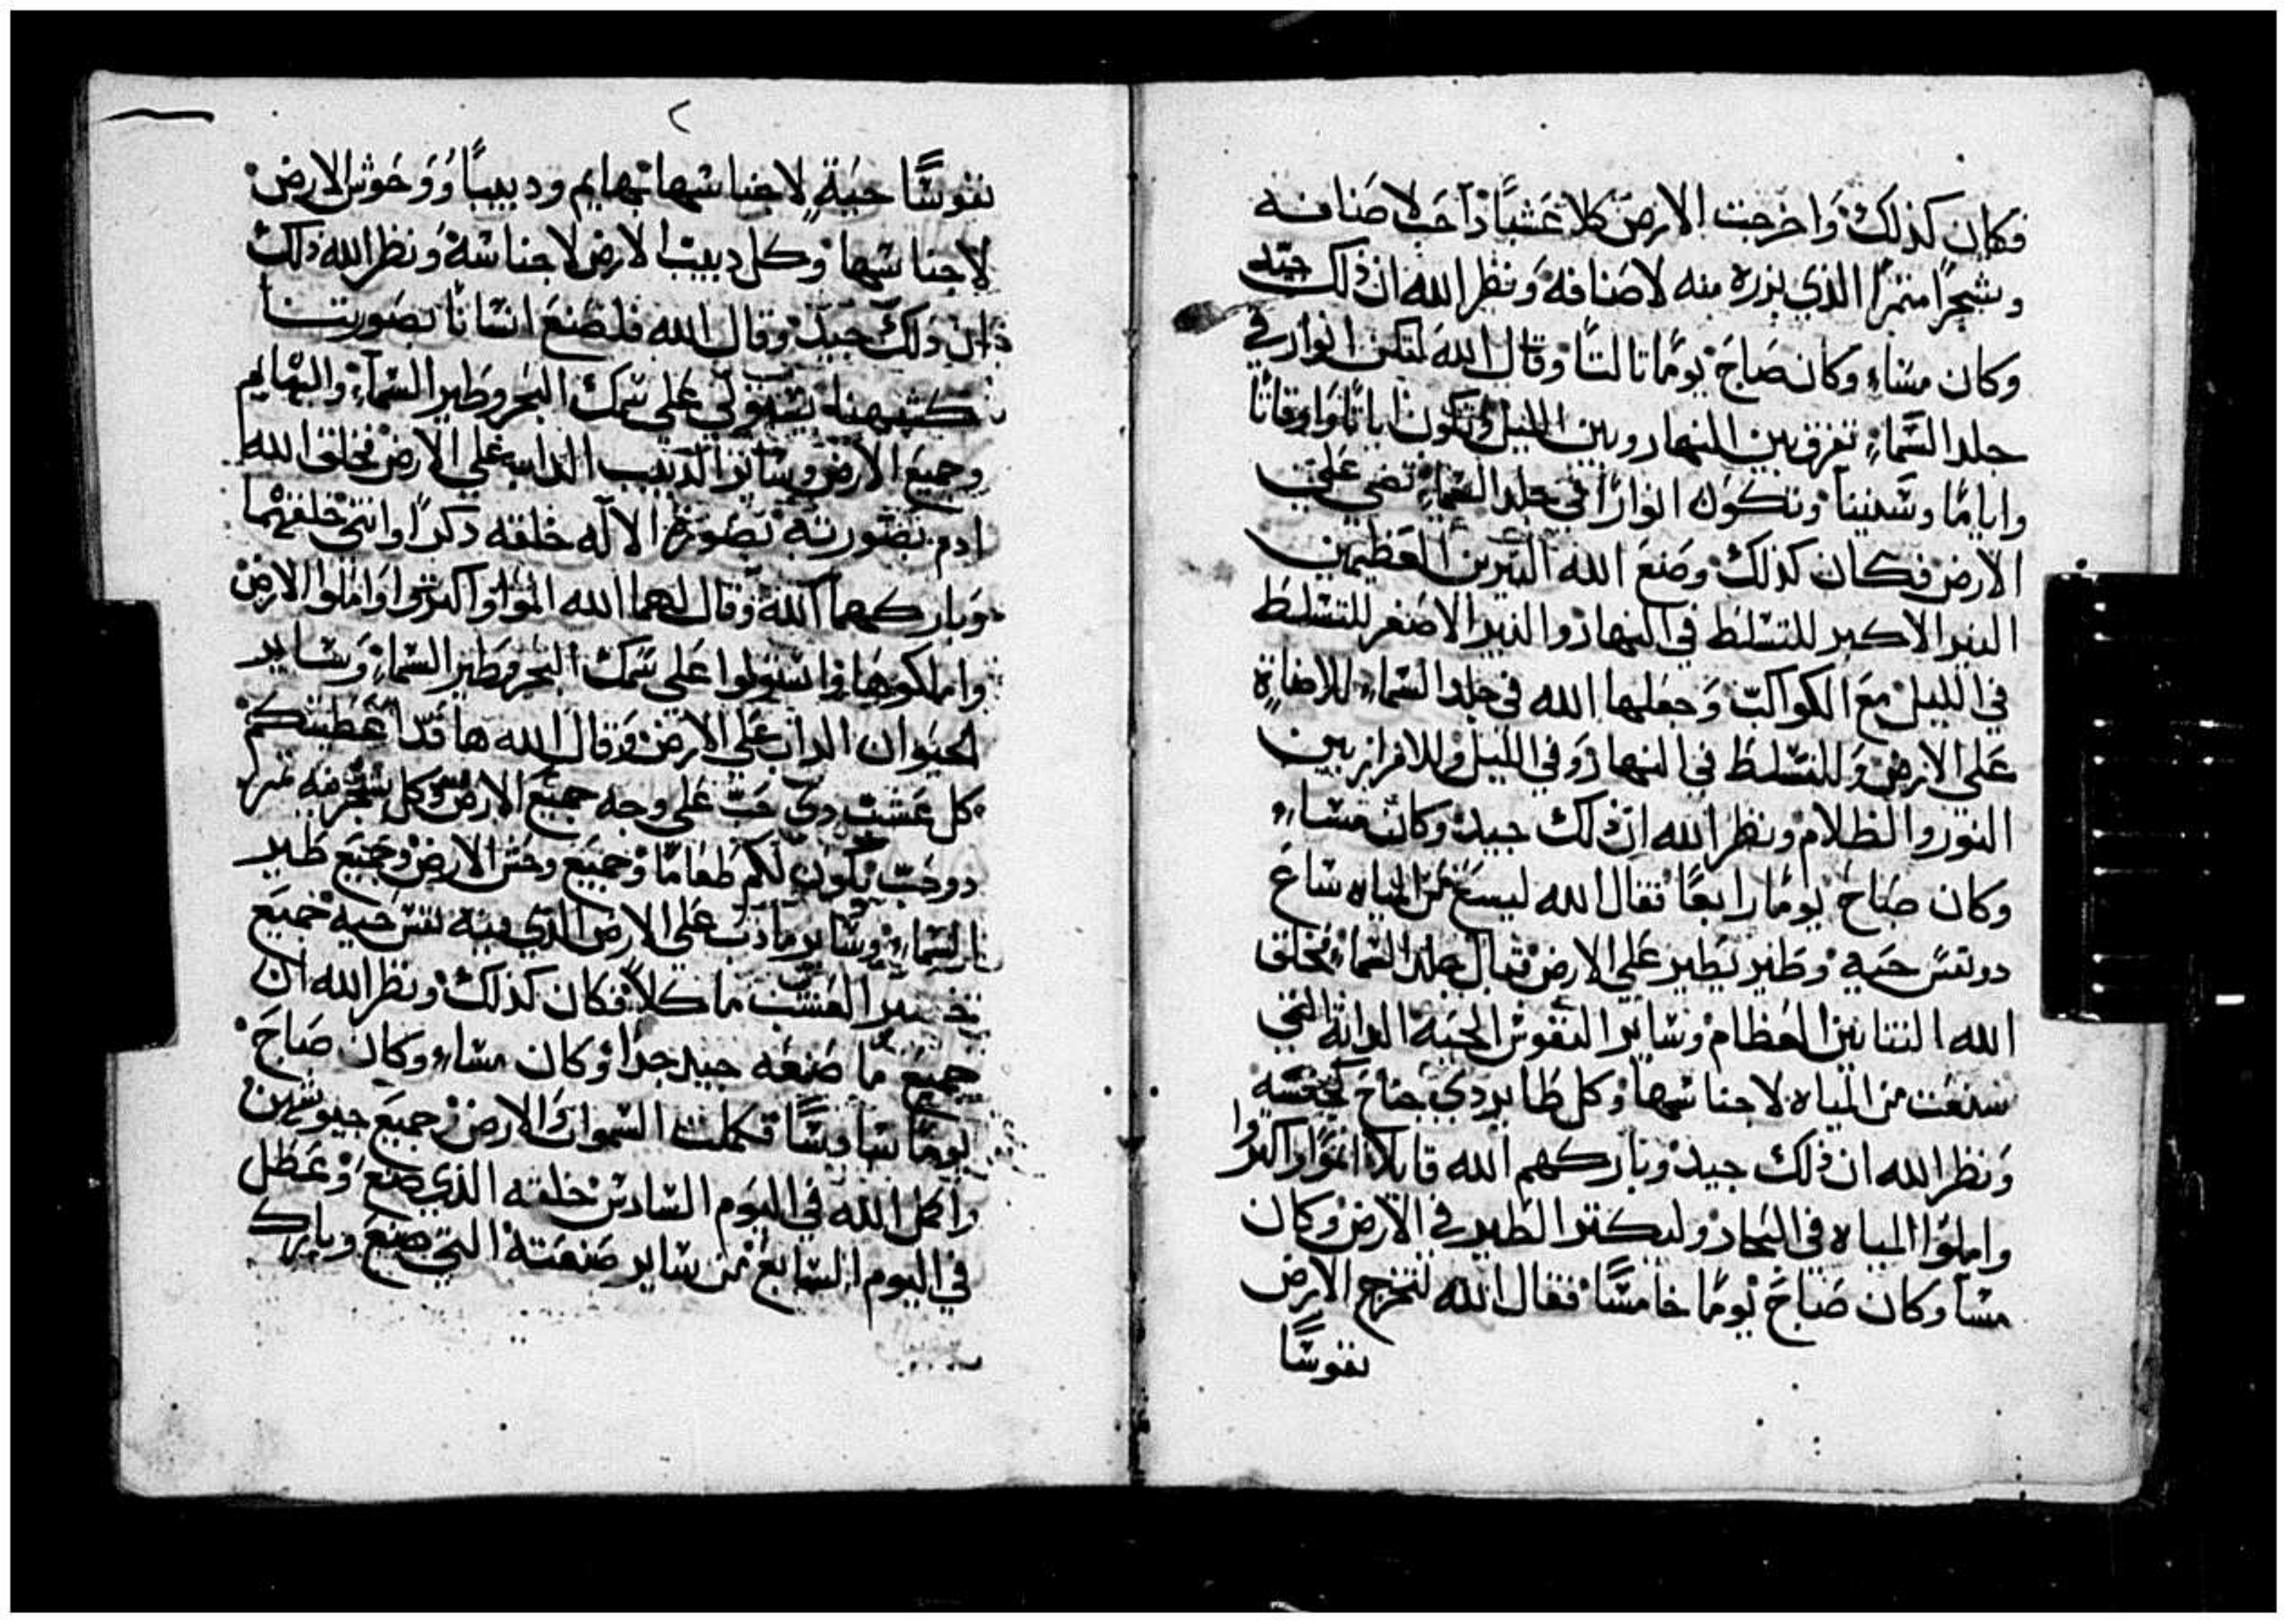 فكان كذلك واخرجت الارض كلا عشبًا ذا حب لاصنافه
وشجرًا مثمرًا الذي بزره منه لاصنافه ونظر الله ان ذلك جيد
وكان مساء وكان صباح يومًا تالتًا وقال الله لتكن انوار في
جلد السماء تفرق بين النهار وبين الليل وتكون اياتا واوقاتا
واياما وسنينا وتكون انوارًا في جلد السماء تضي علي
الارض فكان كذلك وصنع الله النيرين العظيمين
النير الاكبر للتسلط في النهار والنير الاصغر للتسلط
في الليل مع الكواكب وجعلها الله في جلد السماء للاضاة
على الارض وللتسلط في النهار وفي الليل وللافراز بين
النور والظلام ونظر الله ان ذلك جيد وكان مساء
وكان صباح يومًا رابعًا فقال الله ليسع من المياه ساع
دو نفس حيه وطير يطير على الارض قبال جلد السماء فخلق
الله التنانين العظام وساير النفوس الحية الدابة التي
سعت من المياه لاجناسها وكل طاير دي جناح لجنسه
ونظر الله ان ذلك جيد وباركهم الله قايلا انموا واكتروا
واملوا المياه في البحار وليكتر الطير في الارض وكان
مسا وكان صباح يومًا خامسًا فقال الله لتخرج الارض
نفوسًا
٢
نفوسًا حية لاجناسها بهايم ودبيبًا ووحوش الارض
لاجناسها وكل دبيب الارض لاجناسه ونظر الله ذلك
ان ذلك جيد وقال الله فلنصنع انسانا بصورتنا
كشبهنا يستولي على سمك البحر وطير السماء والبهايم
وجميع الارض وسائر الدبيب الدابه على الارض فخلق الله
ادم بصورته بصورة الاله خلقه دكرًا وانتى خلقهما
وباركهما الله وقال لهما الله انموا واكتروا واملوا الارض
واملكوها واستولوا على سمك البحر وطير السماء وساير
الحيوان الداب على الارض وقال الله ها قد اعطيتكم
كل عشب دي حب على وجه جميع الارض وكل شجر فيه ثمر
دو حب يكون لكم طعامًا وجميع وحش الارض وجميع طير
السماء وساير ما دب على الارض الذي فيه نفس حيه جميع
خضير العشب ماكلا فكان كذلك ونظر الله ان
جميع ما صنعه جيد جدا وكان مساء وكان صباح
يومًا سادسًا فكملت السموات والارض وجميع جيوشهن
واكمل الله في اليوم السادس خلقه الذي صنع وعطل
في اليوم السابع من ساير صنعته التي صنع وبارك